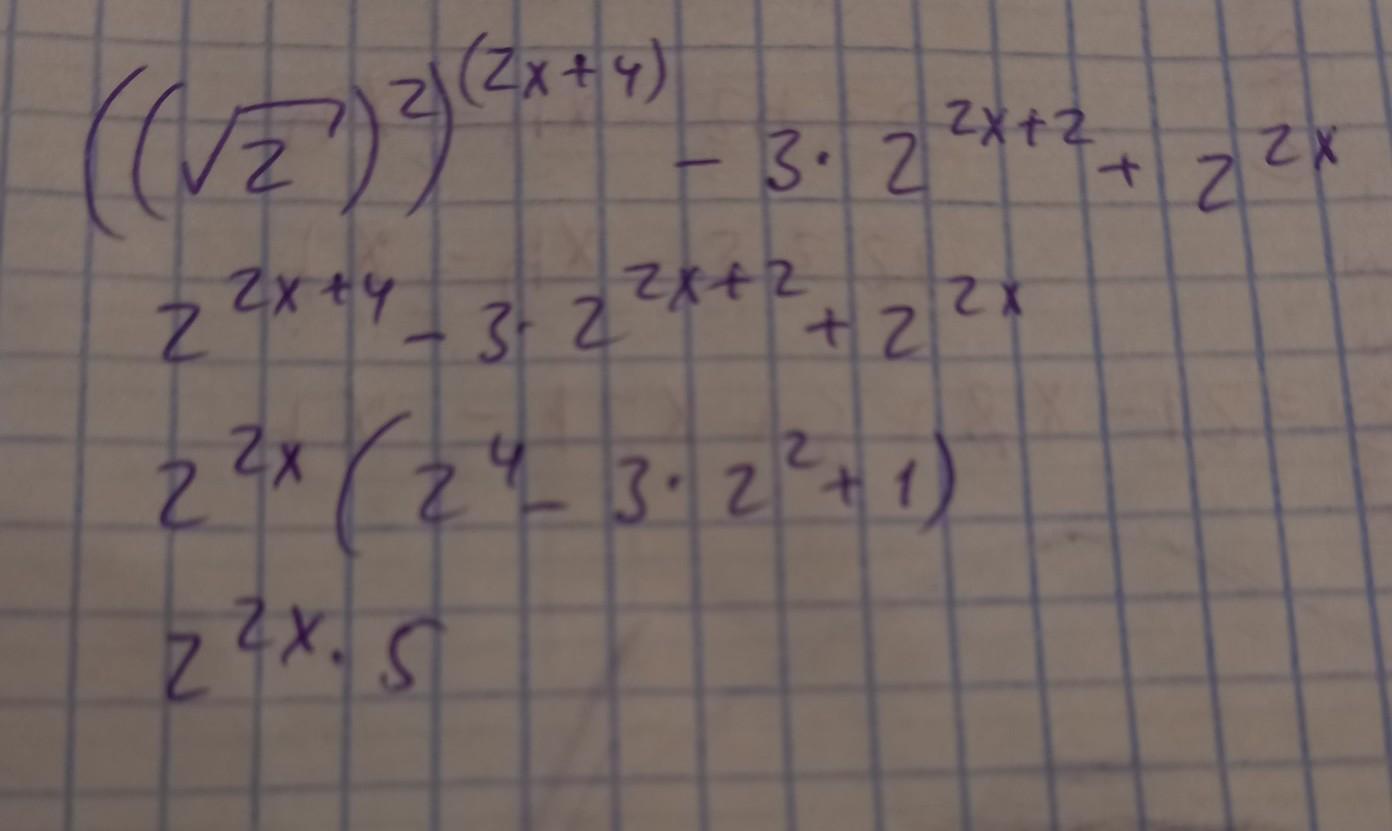 ((√2)²)^(2x+4) - 3·2^(2x+2) + 2^(2x)
2^(2x+4) - 3·2^(2x+2) + 2^(2x)
2^(2x) (2⁴ - 3·2² + 1)
2^(2x)·5